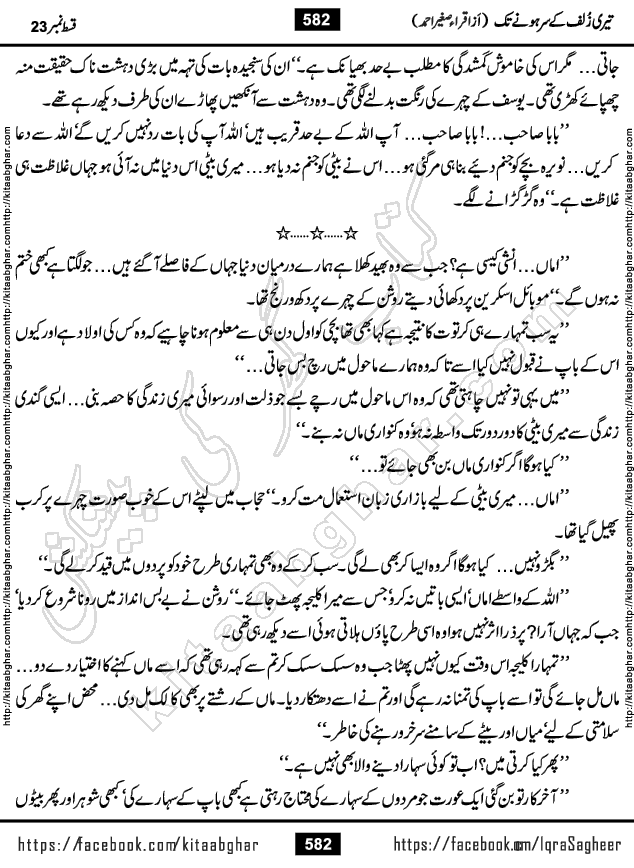 تیری زُلف کے سر ہونے تک (از اقراء صغیر احمد)
582
قسط نمبر 23
جاتی... مگر اس کی خاموش گمشدگی کا مطلب بے حد بھیانک ہے۔‘‘ ان کی سنجیدہ بات کی تہہ میں بڑی دہشت ناک حقیقت منہ
چھپائے کھڑی تھی۔ یوسف کے چہرے کی رنگت بدلنے لگی تھی۔ وہ دہشت سے آنکھیں پھاڑے ان کی طرف دیکھ رہے تھے۔
’’بابا صاحب...! بابا صاحب... آپ اللہ کے بے حد قریب ہیں‘ اللہ آپ کی بات رد نہیں کریں گے‘ اللہ سے دعا
کریں... نویرہ بچے کو جنم دیئے بنا ہی مر گئی ہو... اس نے بیٹی کو جنم نہ دیا ہو... میری بیٹی اس دنیا میں نہ آئی ہو جہاں غلاظت ہی
غلاظت ہے۔‘‘ وہ گڑگڑانے لگے۔
☆......☆......☆
’’اماں... انشی کیسی ہے؟ جب سے وہ بھید کھلا ہے ہمارے درمیان دنیا جہاں کے فاصلے آ گئے ہیں... جو لگتا ہے کبھی ختم
نہ ہوں گے۔‘‘ موبائل اسکرین پر دکھائی دیتے روشن کے چہرے پر دکھ و رنج تھا۔
’’یہ سب تمہارے ہی کرتوت کا نتیجہ ہے کہا بھی تھا بچی کو اول دن ہی سے معلوم ہونا چاہیے کہ وہ کس کی اولاد ہے اور کیوں
اس کے باپ نے قبول نہیں کیا اسے تاکہ وہ ہمارے ماحول میں رچ بس جاتی...‘‘
’’میں یہی تو نہیں چاہتی تھی کہ وہ اس ماحول میں رچے بسے جو ذلت اور رسوائی میری زندگی کا حصہ بنی... ایسی گندی
زندگی سے میری بیٹی کا دور دور تک واسطہ نہ ہو‘ وہ کنواری ماں نہ بنے۔‘‘
’’کیا ہوگا اگر کنواری ماں بن بھی جائے تو...‘‘
’’اماں... میری بیٹی کے لیے بازاری زبان استعمال مت کرو۔‘‘ حجاب میں لپٹے اس کے خوب صورت چہرے پر کرب
پھیل گیا تھا۔
’’بگڑو نہیں... کیا ہوگا اگر وہ ایسا کر بھی لے گی۔ سب کر کے وہ بھی تمہاری طرح خود کو پردوں میں قید کر لے گی۔‘‘
’’اللہ کے واسطے اماں‘ ایسی باتیں نہ کرو‘ جس سے میرا کلیجہ پھٹ جائے۔‘‘ روشن نے بے بس انداز میں رونا شروع کر دیا‘
جب کہ جہاں آرا؟ پر ذرا اثر نہیں ہوا وہ اسی طرح پاؤں ہلاتی ہوئی اسے دیکھ رہی تھی۔
’’تمہارا کلیجہ اس وقت کیوں نہیں پھٹا جب وہ سسک سسک کر تم سے کہہ رہی تھی کہ اسے ماں کہنے کا اختیار دے دو...
ماں مل جائے گی تو اسے باپ کی تمنا نہ رہے گی اور تم نے اسے دھتکار دیا۔ ماں کے رشتے پر بھی کالک مل دی... محض اپنے گھر کی
سلامتی کے لیے‘ میاں اور بیٹے کے سامنے سرخرو رہنے کی خاطر۔‘‘
’’پھر کیا کرتی میں؟ اب تو کوئی سہارا دینے والا بھی نہیں ہے۔‘‘
’’آخر کار تو بن گئی ایک عورت جو مردوں کے سہارے کی محتاج رہتی ہے کبھی باپ کے سہارے کی‘ کبھی شوہر اور پھر بیٹوں
https://facebook.com/kitaabghar
582
https://facebook.com/IqraSagheer
http://kitaabghar.com
http://kitaabghar.com
کتاب گھر کی پیشکش
kitaabghar.com